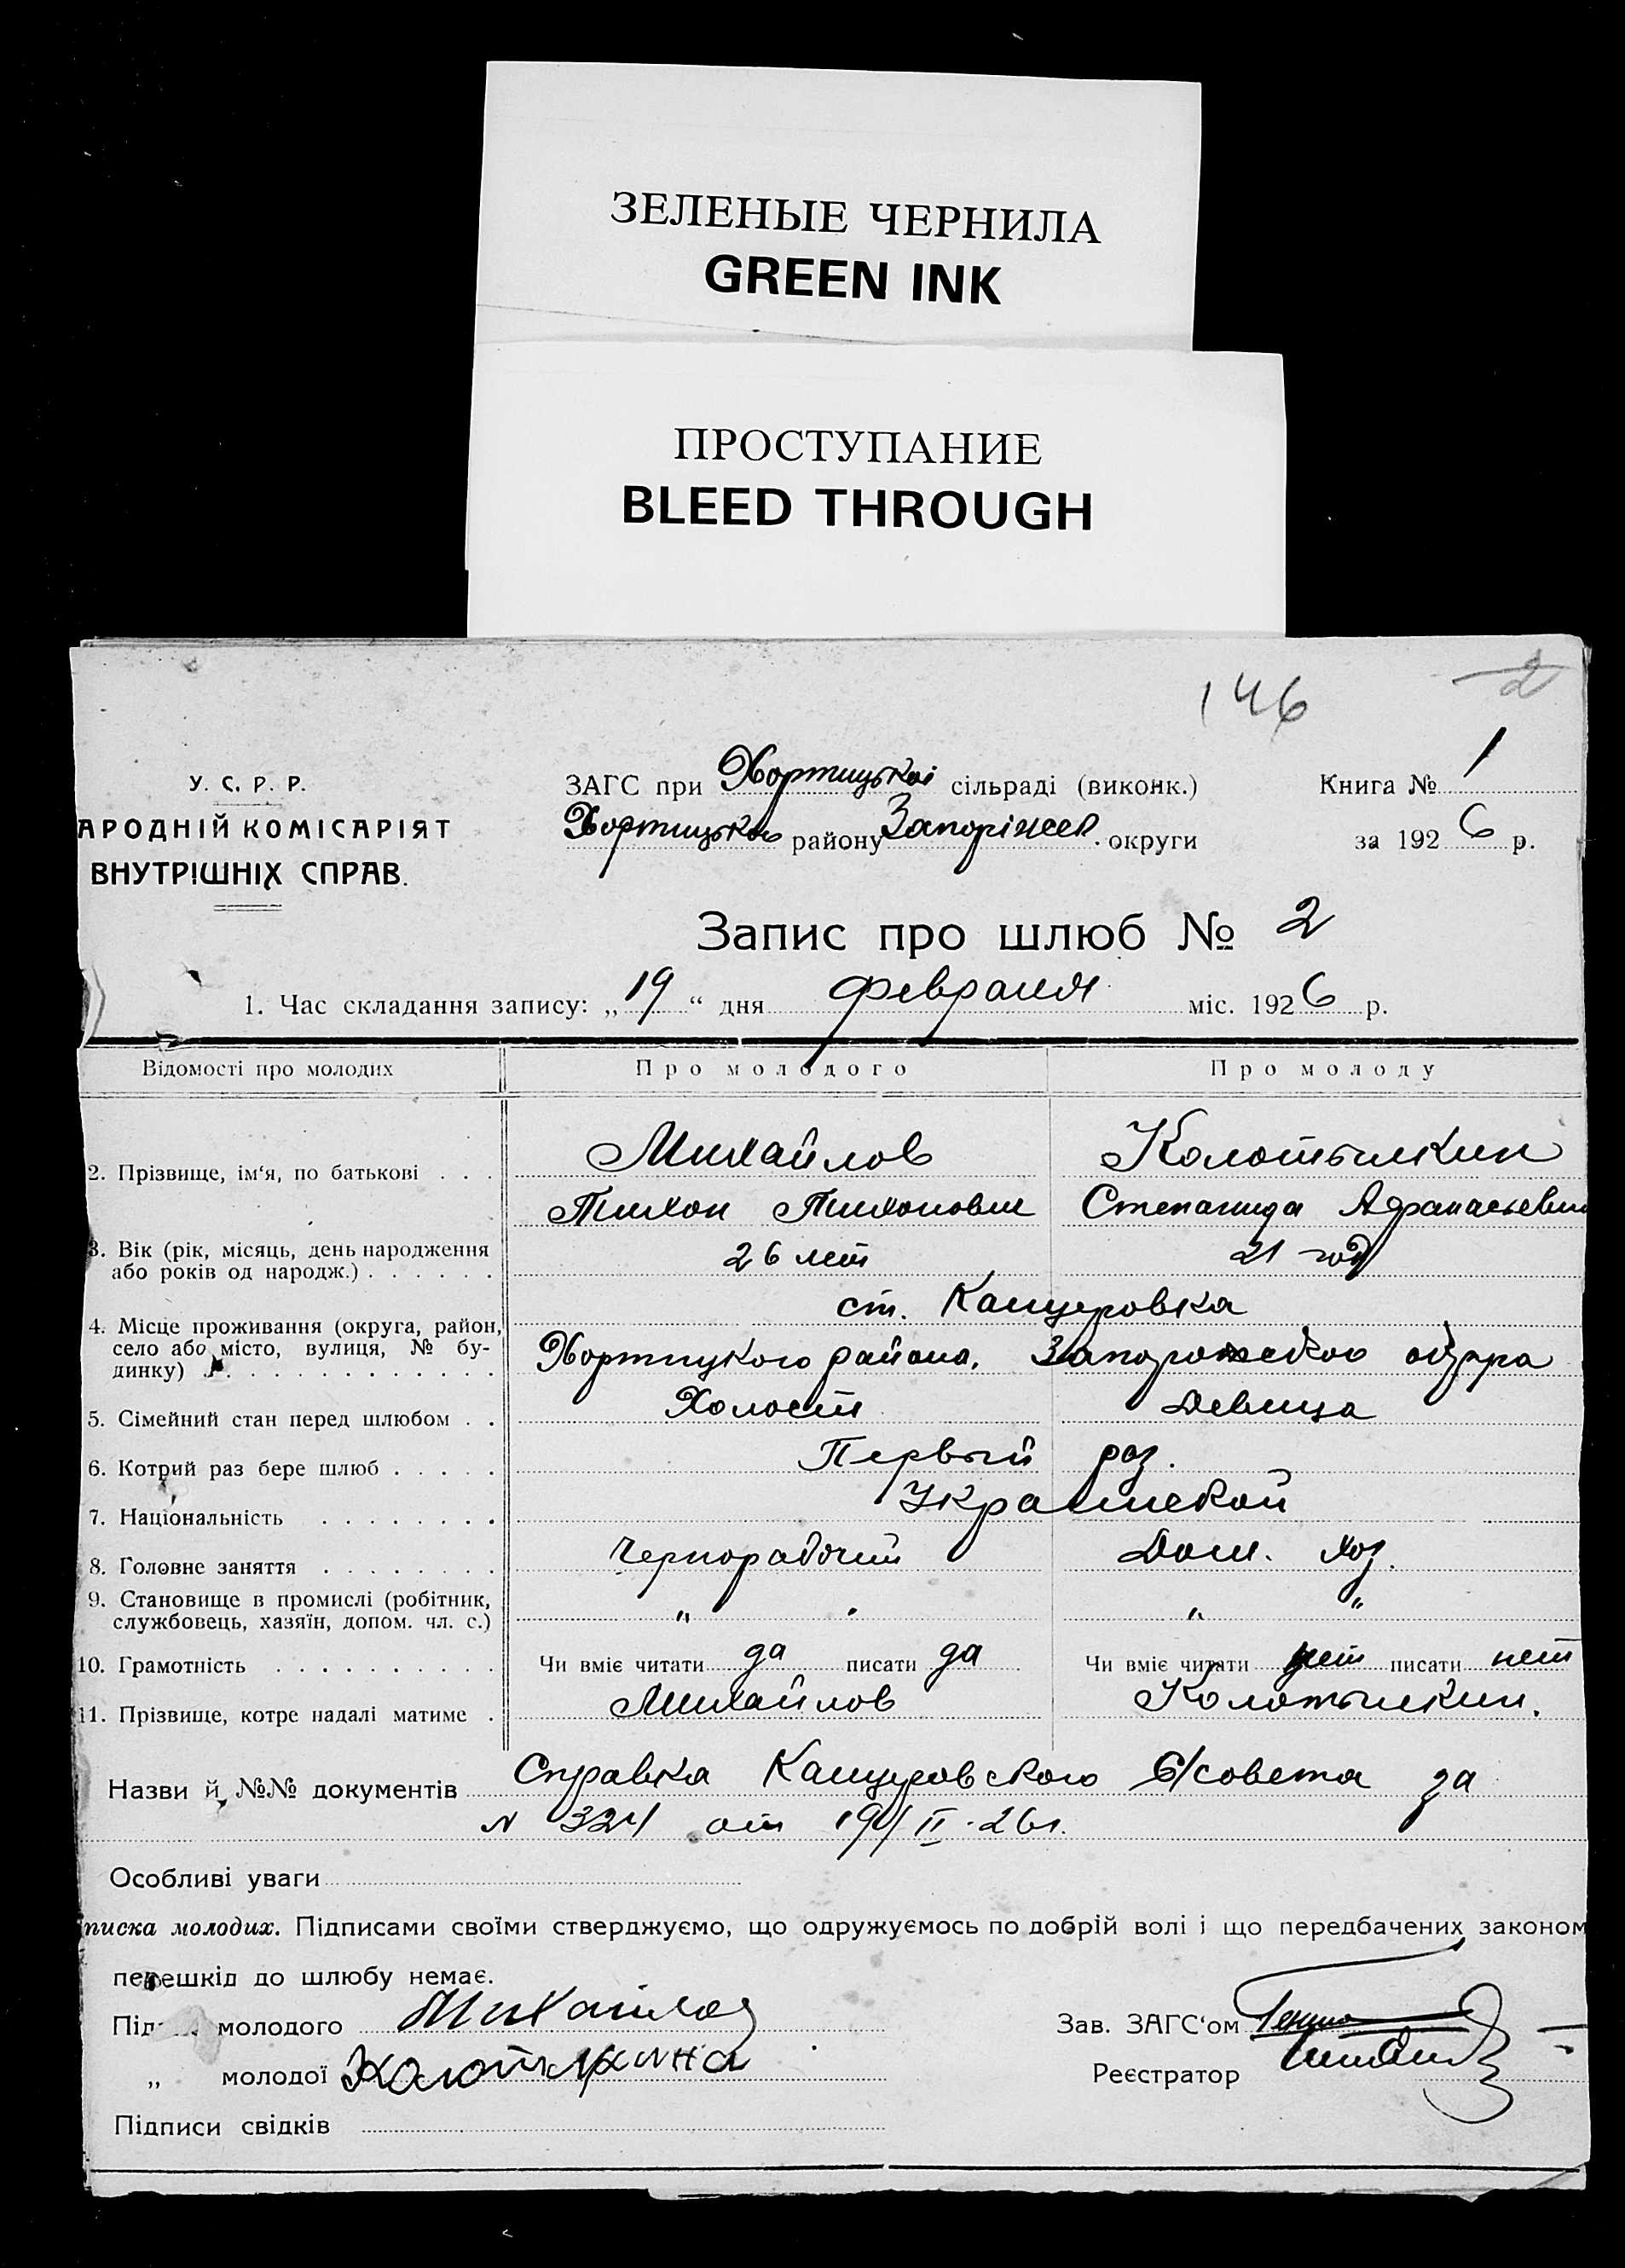 ЗЕЛЕНЫЕ ЧЕРНИЛА
GREEN INK
ПРОСТУПАНИЕ
BLEED THROUGH
146 2
У. С. Р. Р.
АРОДНІЙ КОМІСАРІЯТ
ВНУТРІШНІХ СПРАВ.
ЗАГС при Хортицької сільраді (виконк.) Книга № 1
Хортицького району Запоріжск. округи за 1926 р.
Запис про шлюб № 2
1. Час складання запису: „19“ дня февраля міс. 1926 р.
Відомості про молодих Про молодого Про молоду
2. Прізвище, ім‘я, по батькові . . . Михайлов Колотылкин
Тихон Тихонович Степанида Афанасьевн
3. Вік (рік, місяць, день народження 26 лет 21 год
або років од народж.) . . . . . .
ст. Канцеровка
4. Місце проживання (округа, район,
село або місто, вулиця, № бу- Хортицкого района, Запорожского округа
динку) . . . . . . . . . . . .
5. Сімейний стан перед шлюбом . . Холост Девица
6. Котрий раз бере шлюб . . . . . Первый раз.
7. Національність . . . . . . . . Украинской
8. Головне заняття . . . . . . . . Чернорабочий Дом. хоз.
9. Становище в промислі (робітник, „ „ „
службовець, хазяїн, допом. чл. с.)
10. Грамотність . . . . . . . . . . Чи вміє читати да писати да Чи вміє читати нет писати нет
11. Прізвище, котре надалі матиме . Михайлов Колотылкин.
Назви й №№ документів Справка Канцеровского С/совета за
N 324 от 19/II-26г.
Особливі уваги
писка молодих. Підписами своїми стверджуємо, що одружуємось по добрій волі і що передбачених законом
перешкід до шлюбу немає.
Під молодого Михайлов Зав. ЗАГС‘ом
„ молодої Колотылкина Реєстратор
Підписи свідків